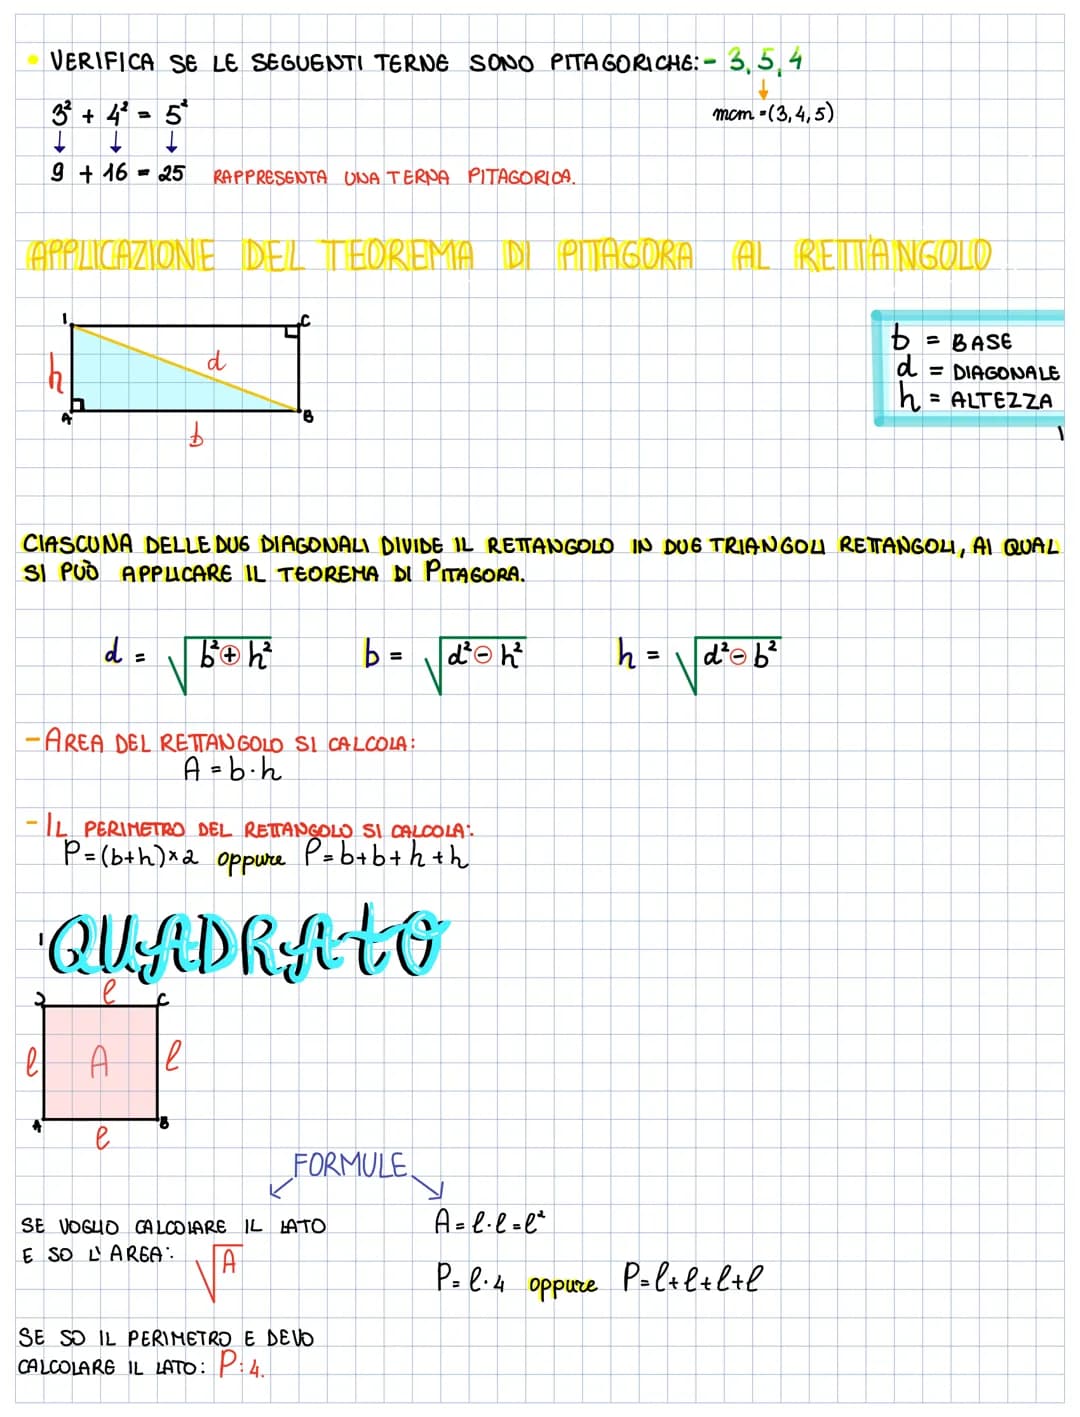 • VERIFICA SE LE SEGUENTI TERNE SONO PITAGORICHE: - 3, 5, 4
mcm = (3, 4, 5)
3² + 4² = 5²
↓ ↓ ↓
9 + 16 = 25 RAPPRESENTA UNA TERNA PITAGORICA.
APPLICAZIONE DEL TEOREMA DI PITAGORA AL RETTANGOLO
C
h d
A B
b
b = BASE
d = DIAGONALE
h = ALTEZZA
CIASCUNA DELLE DUE DIAGONALI DIVIDE IL RETTANGOLO IN DUE TRIANGOLI RETTANGOLI, AI QUAL
SI PUÒ APPLICARE IL TEOREMA DI PITAGORA.
d = √b² + h² b = √d² - h² h = √d² - b²
- AREA DEL RETTANGOLO SI CALCOLA:
A = b · h
- IL PERIMETRO DEL RETTANGOLO SI CALCOLA:
P = (b+h) × 2 oppure P = b + b + h + h
QUADRATO
l
C
l A l
A B
l
FORMULE
SE VOGLIO CALCOLARE IL LATO
E SO L'AREA:
√A
A = l · l = l²
P = l · 4 oppure P = l + l + l + l
SE SO IL PERIMETRO E DEVO
CALCOLARE IL LATO: P : 4.